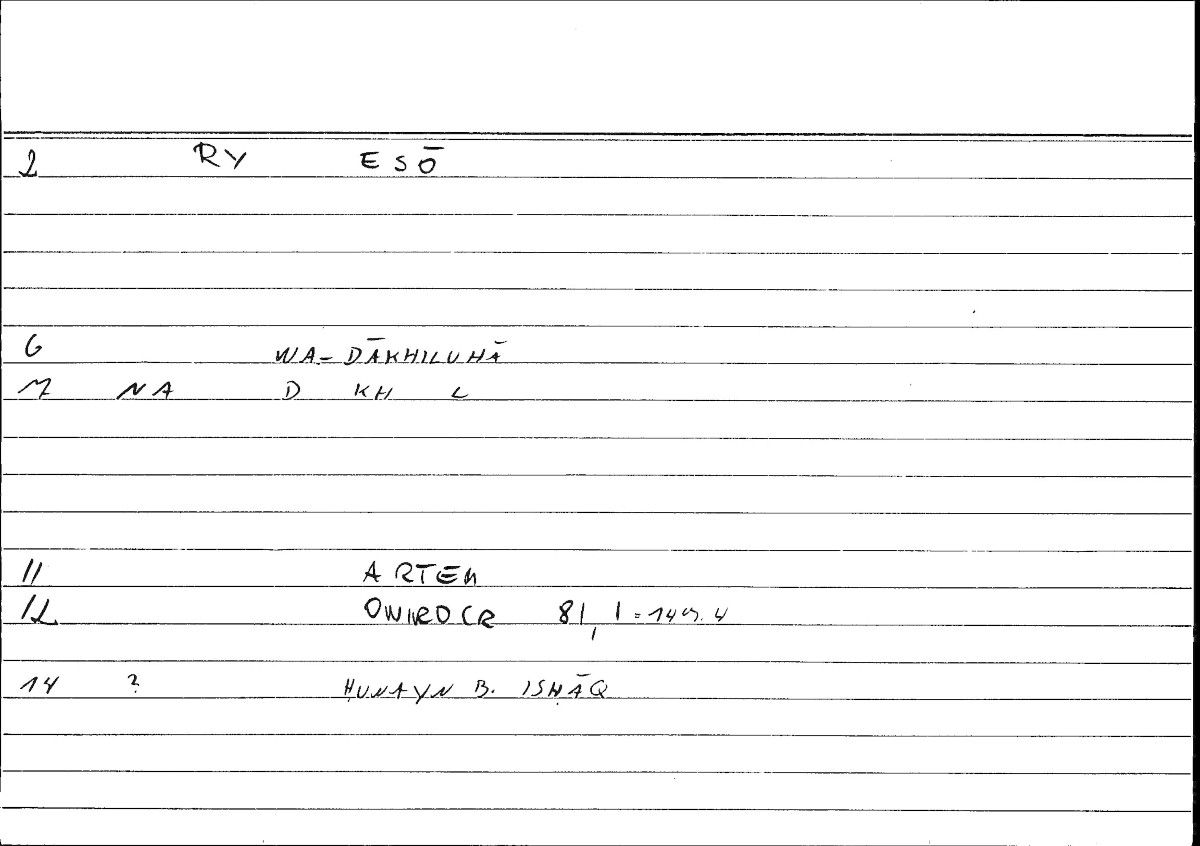 2 RY ESŌ
6 WA-DĀKHILUHĀ
7 NA D KH L
11 ARTEM
12 ONIROCR 81,1=149.4
14 ? ḤUNAYN B. ISḤĀQ